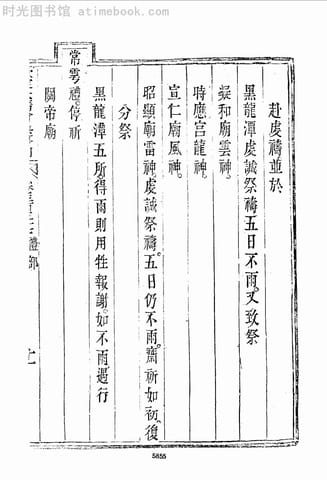 时光图书馆 - atimebook.com
赴處禱並於
黑龍潭虔誠祭禱五日不雨又致祭
凝和廟雲神
時應宫龍神
宣仁廟風神
昭顯廟雷神虔誠祭禱五日仍不雨齋祈如初後
分祭
黑龍潭五所得雨則用牲報謝如不雨遇行
常雩禮停祈
關帝廟
禮部
5855